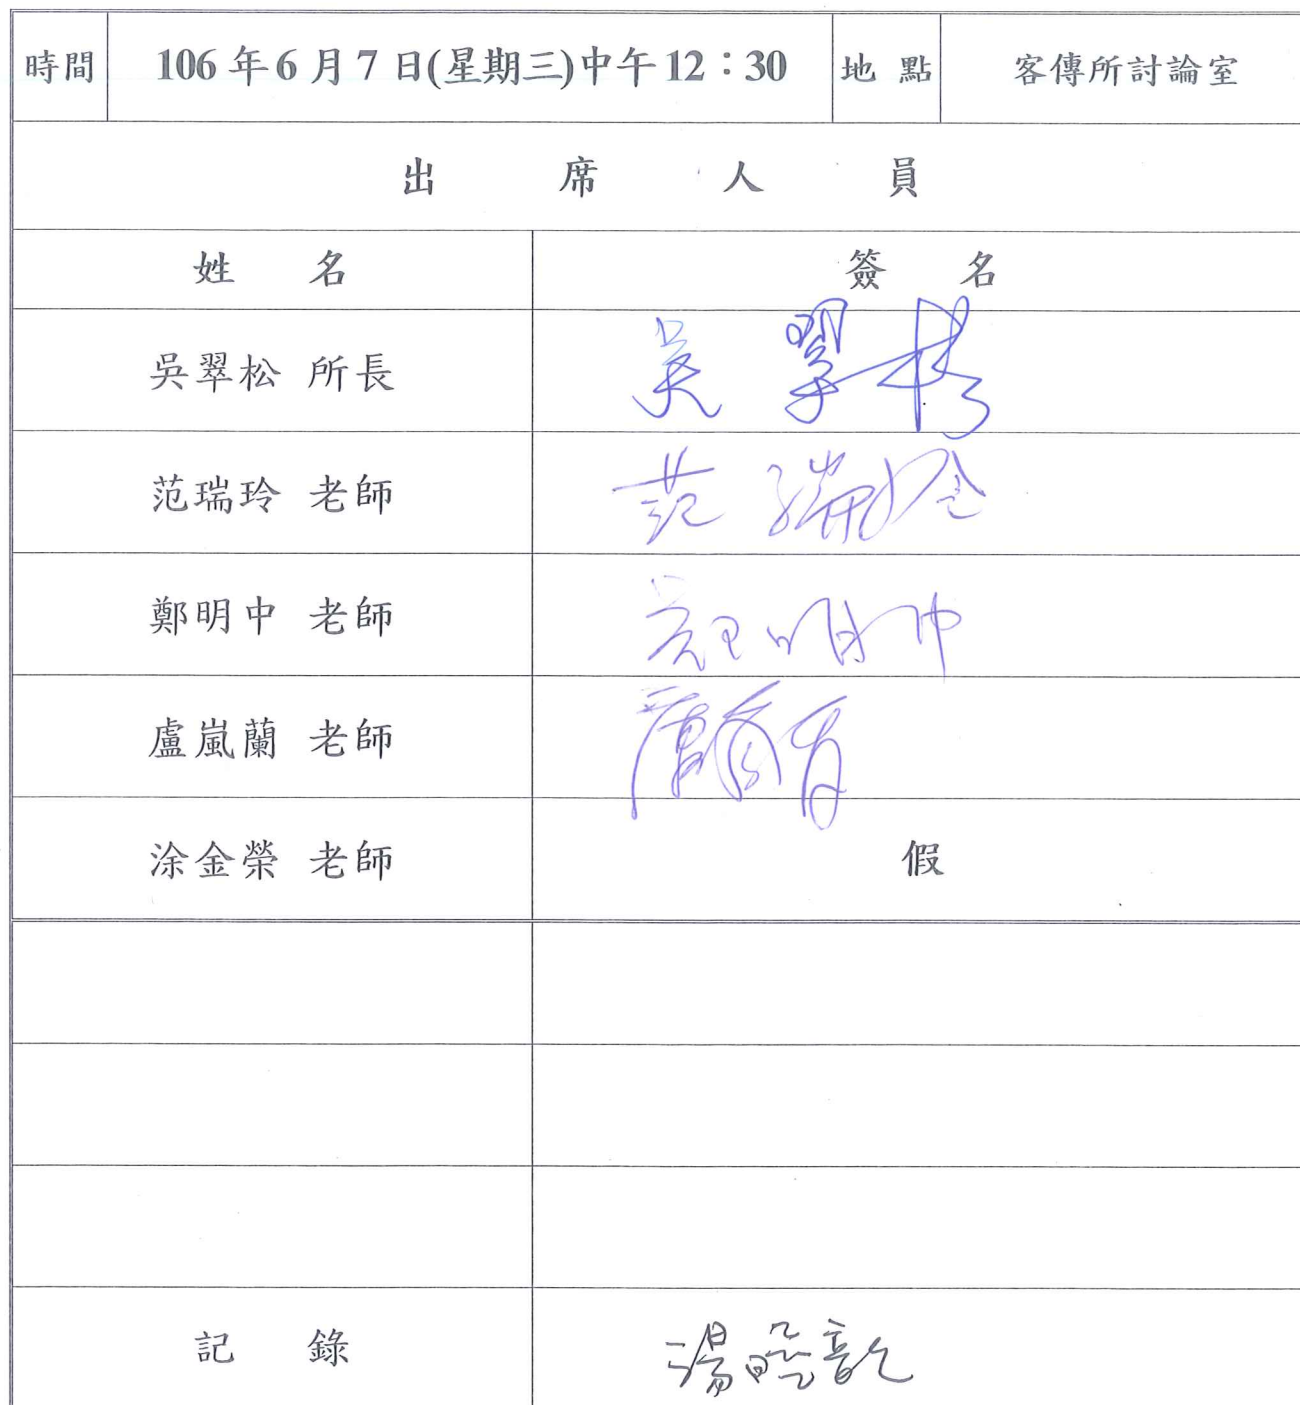 時間 106年6月7日(星期三)中午12：30 地點 客傳所討論室
出席人員
姓名 簽名
吳翠松 所長 吳翠松
范瑞玲 老師 范瑞玲
鄭明中 老師 鄭明中
盧嵐蘭 老師
涂金榮 老師 假
記錄